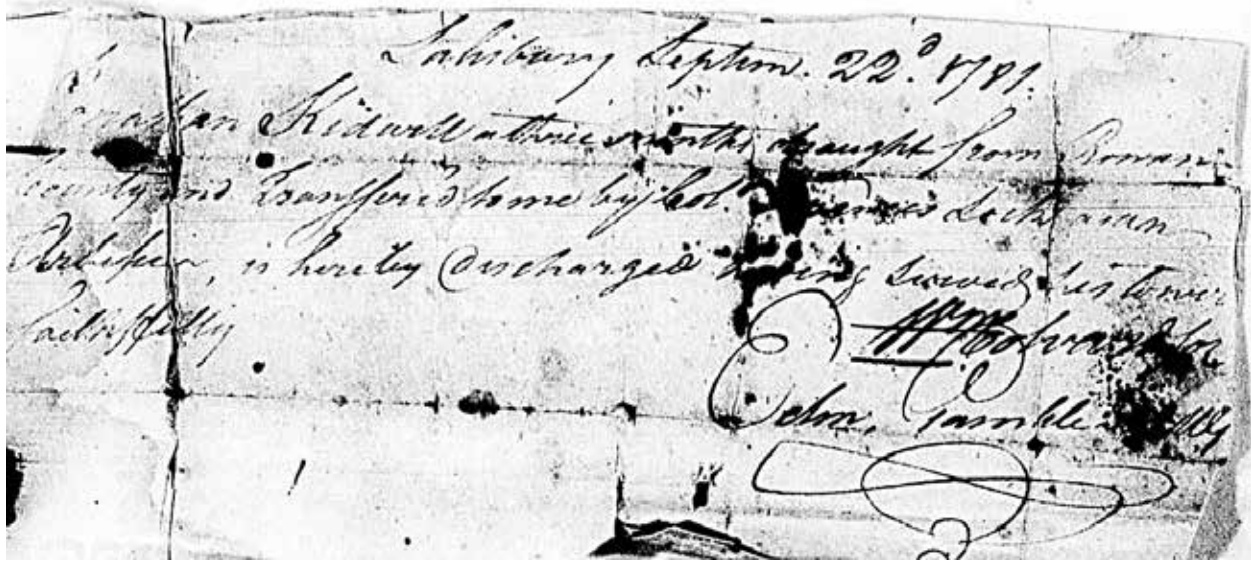 Salisbury Septem. 22d. 1781.
Kidwell a three months draught from Rowan
County and Transferd to me by Col. Lock as an
Artificer, is hereby Discharged having served his tower
Faithfully
Wm
Edm. Gamble